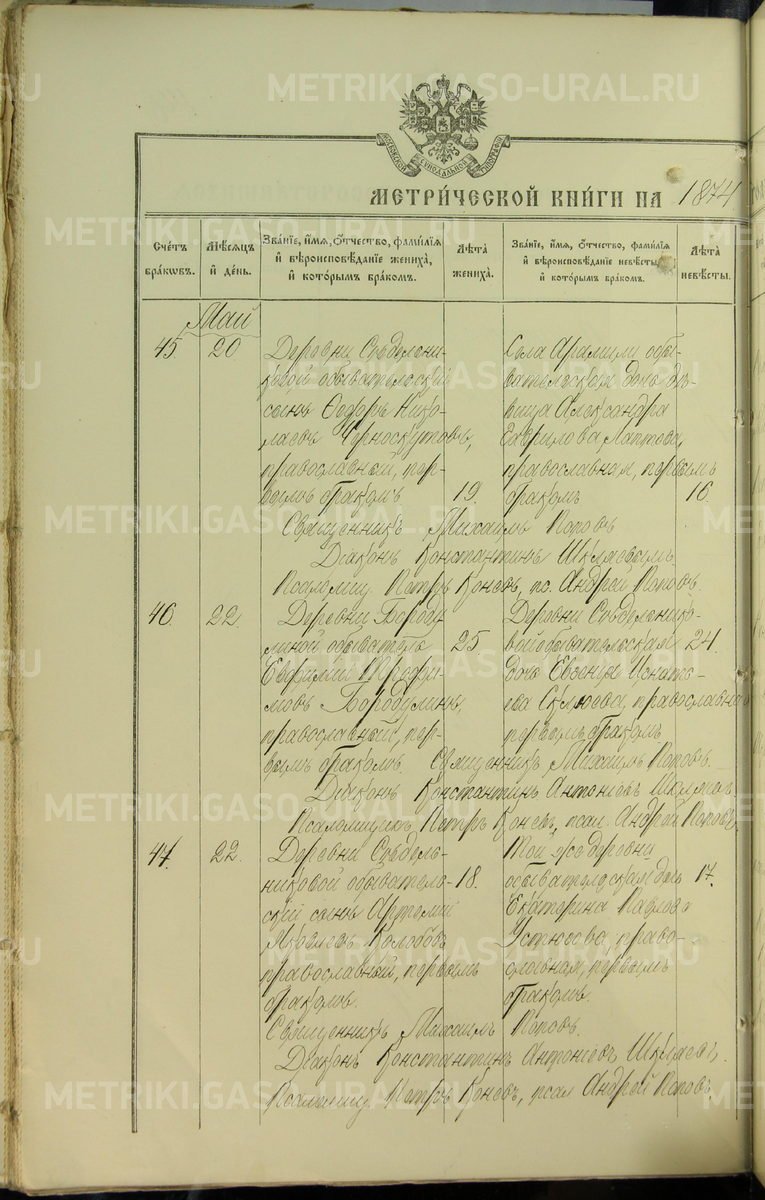 METRIKI.GASO-URAL.RU
МОСКОВСКОЙ СѴНОДАЛЬНОЙ ТИПОГРАФІИ
МЕТРИ́ЧЕСКОЙ КНИ́ГИ НА 1874
Счетъ бра́кѡвъ.
Мѣсяцъ и҆ де́нь.
Зва́нїе, и҆́мѧ, ѻ҆́тчество, фами́лїѧ и҆ вѣроисповѣ́данїе жениха̀, и҆ кото́рымъ бра́комъ.
Лѣ́та жениха̀.
Зва́нїе, и҆́мѧ, ѻ҆́тчество, фами́лїѧ и҆ вѣроисповѣ́данїе невѣ́сты, и҆ кото́рымъ бра́комъ.
Лѣ́та невѣ́сты.
Май
45 20
Деревни Сѣдельни-
ковой обывательскій
сынъ Ѳедоръ Нико-
лаевъ Черноскутовъ,
православный, пер-
вымъ бракомъ 19.
Села Арамили обы-
вательская дочь дѣ-
вица Александра
Гаврилова Лаптева,
православная, первымъ
бракомъ 16.
Священникъ Михаилъ Поповъ
Діаконъ Константинъ Шкляевъ
Псаломщ. Петръ Коневъ, пс. Андрей Поповъ.
46 22
Деревни Бороду-
линой обыватель 25.
Евфимій Трофи-
мовъ Бородулинъ,
православный, пер-
вымъ бракомъ.
Деревни Сѣдельнико-
вой обывательская 24.
дочь Евгенія Игнать-
ева, православная
первымъ бракомъ
Священникъ Михаилъ Поповъ.
Діаконъ Константинъ Антоніевъ Шкляевъ
Псаломщикъ Петръ Коневъ, псал. Андрей Поповъ,
47. 22.
Деревни Сѣдель-
никовой обыватель- 18.
скій сынъ Артемій
Яковлевъ Колобовъ
православный, первымъ
бракомъ.
Той-же деревни
обывательская дочь 17.
Екатерина Павлова
право-
славная, первымъ
бракомъ.
Священникъ Михаилъ Поповъ.
Діаконъ Константинъ Антоніевъ Шкляевъ.
Псаломщ. Петръ Коневъ, псал Андрей Поповъ.